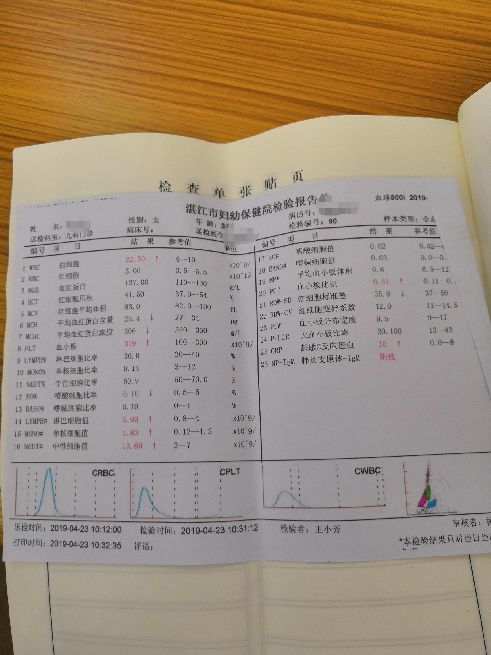 检查单张贴页
湛江市妇幼保健院检验报告 血球800i 2019-
姓名: 性别: 女 年龄: 病历号:
送检科室: 儿科门诊 病床号: 送检医生 检验编号: 90 样本类型: 全血
编号 项目 结果 参考值
1 WBC 白细胞 22.50 ↑ 4--10 x10^9/
2 RBC 红细胞 5.00 3.5--5.5 x10^12/
3 HGB 血红蛋白 127.00 110--150 g/L
4 HCT 红细胞压积 41.50 %
5 MCV 平均红细胞体积 83.0
6 MCH 平均血红蛋白含量 25.4 ↓ 27--
7 MCHC 平均血红蛋白浓度 306 ↓ 320--
8 PLT 血小板 319 ↑ 100--300
9 LYMPH% 淋巴细胞比率 20--40 %
10 MONO% 单核细胞比率 8.14 3--12 %
11 NEUT% 中性细胞比率 50--70.0 %
12 EO% 嗜酸细胞比率 0.10 ↓ 0.5--5 %
13 BASO% 嗜碱细胞比率 0.10 0--1 %
14 LYMPH# 淋巴细胞值 ↑ 0.8--4 x10^9/
15 MONO# 单核细胞值 1.83 ↑ 0.12--1.2 x10^9/
16 NEUT# 中性细胞值 13.69 ↑ 2--7 x10^9/
编号 项目 结果 参考值
17 EO# 嗜酸细胞值 0.02 0.02--
18 BASO# 嗜碱细胞值 0.03
19 MPV 平均血小板体积 9.6 6.5--12
20 PCT 血小板比积 0.31 ↑ 0.11--0.
21 RDW-SD 红细胞标准差 35.9 ↓ 37--50
22 RDW-CV 红细胞变异系数 12.0 11--14.5
23 PDW 血小板分布宽度 9.5 9--17
24 P-LCR 大血小板比率 20.100 13--43
25 CRP 超敏C反应蛋白 10 ↑ 0.0--8
26 MP-IgM 肺炎支原体-IgM 阳性
CRBC CPLT CWBC
送检时间: 2019-04-23 10:12:00 检验时间: 2019-04-23 10:31:12 检验者: 王小芳 审核者:
打印时间: 2019-04-23 10:32:35 评语: *本检验结果只对当日当